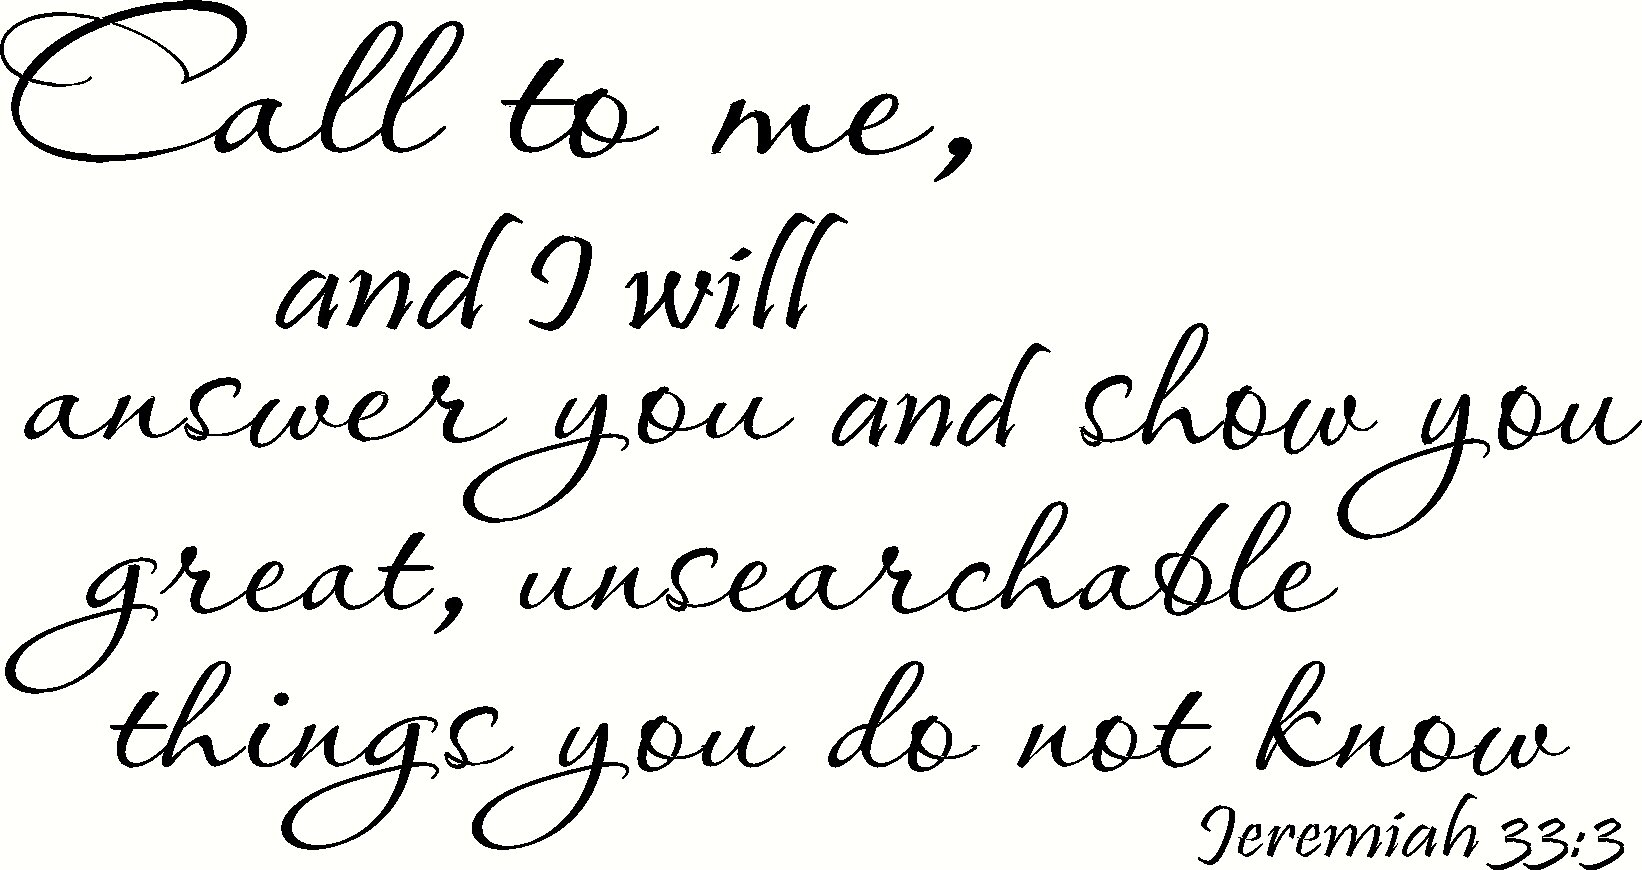 Call to me,
and I will
answer you and show you
great, unsearchable
things you do not know
Jeremiah 33:3